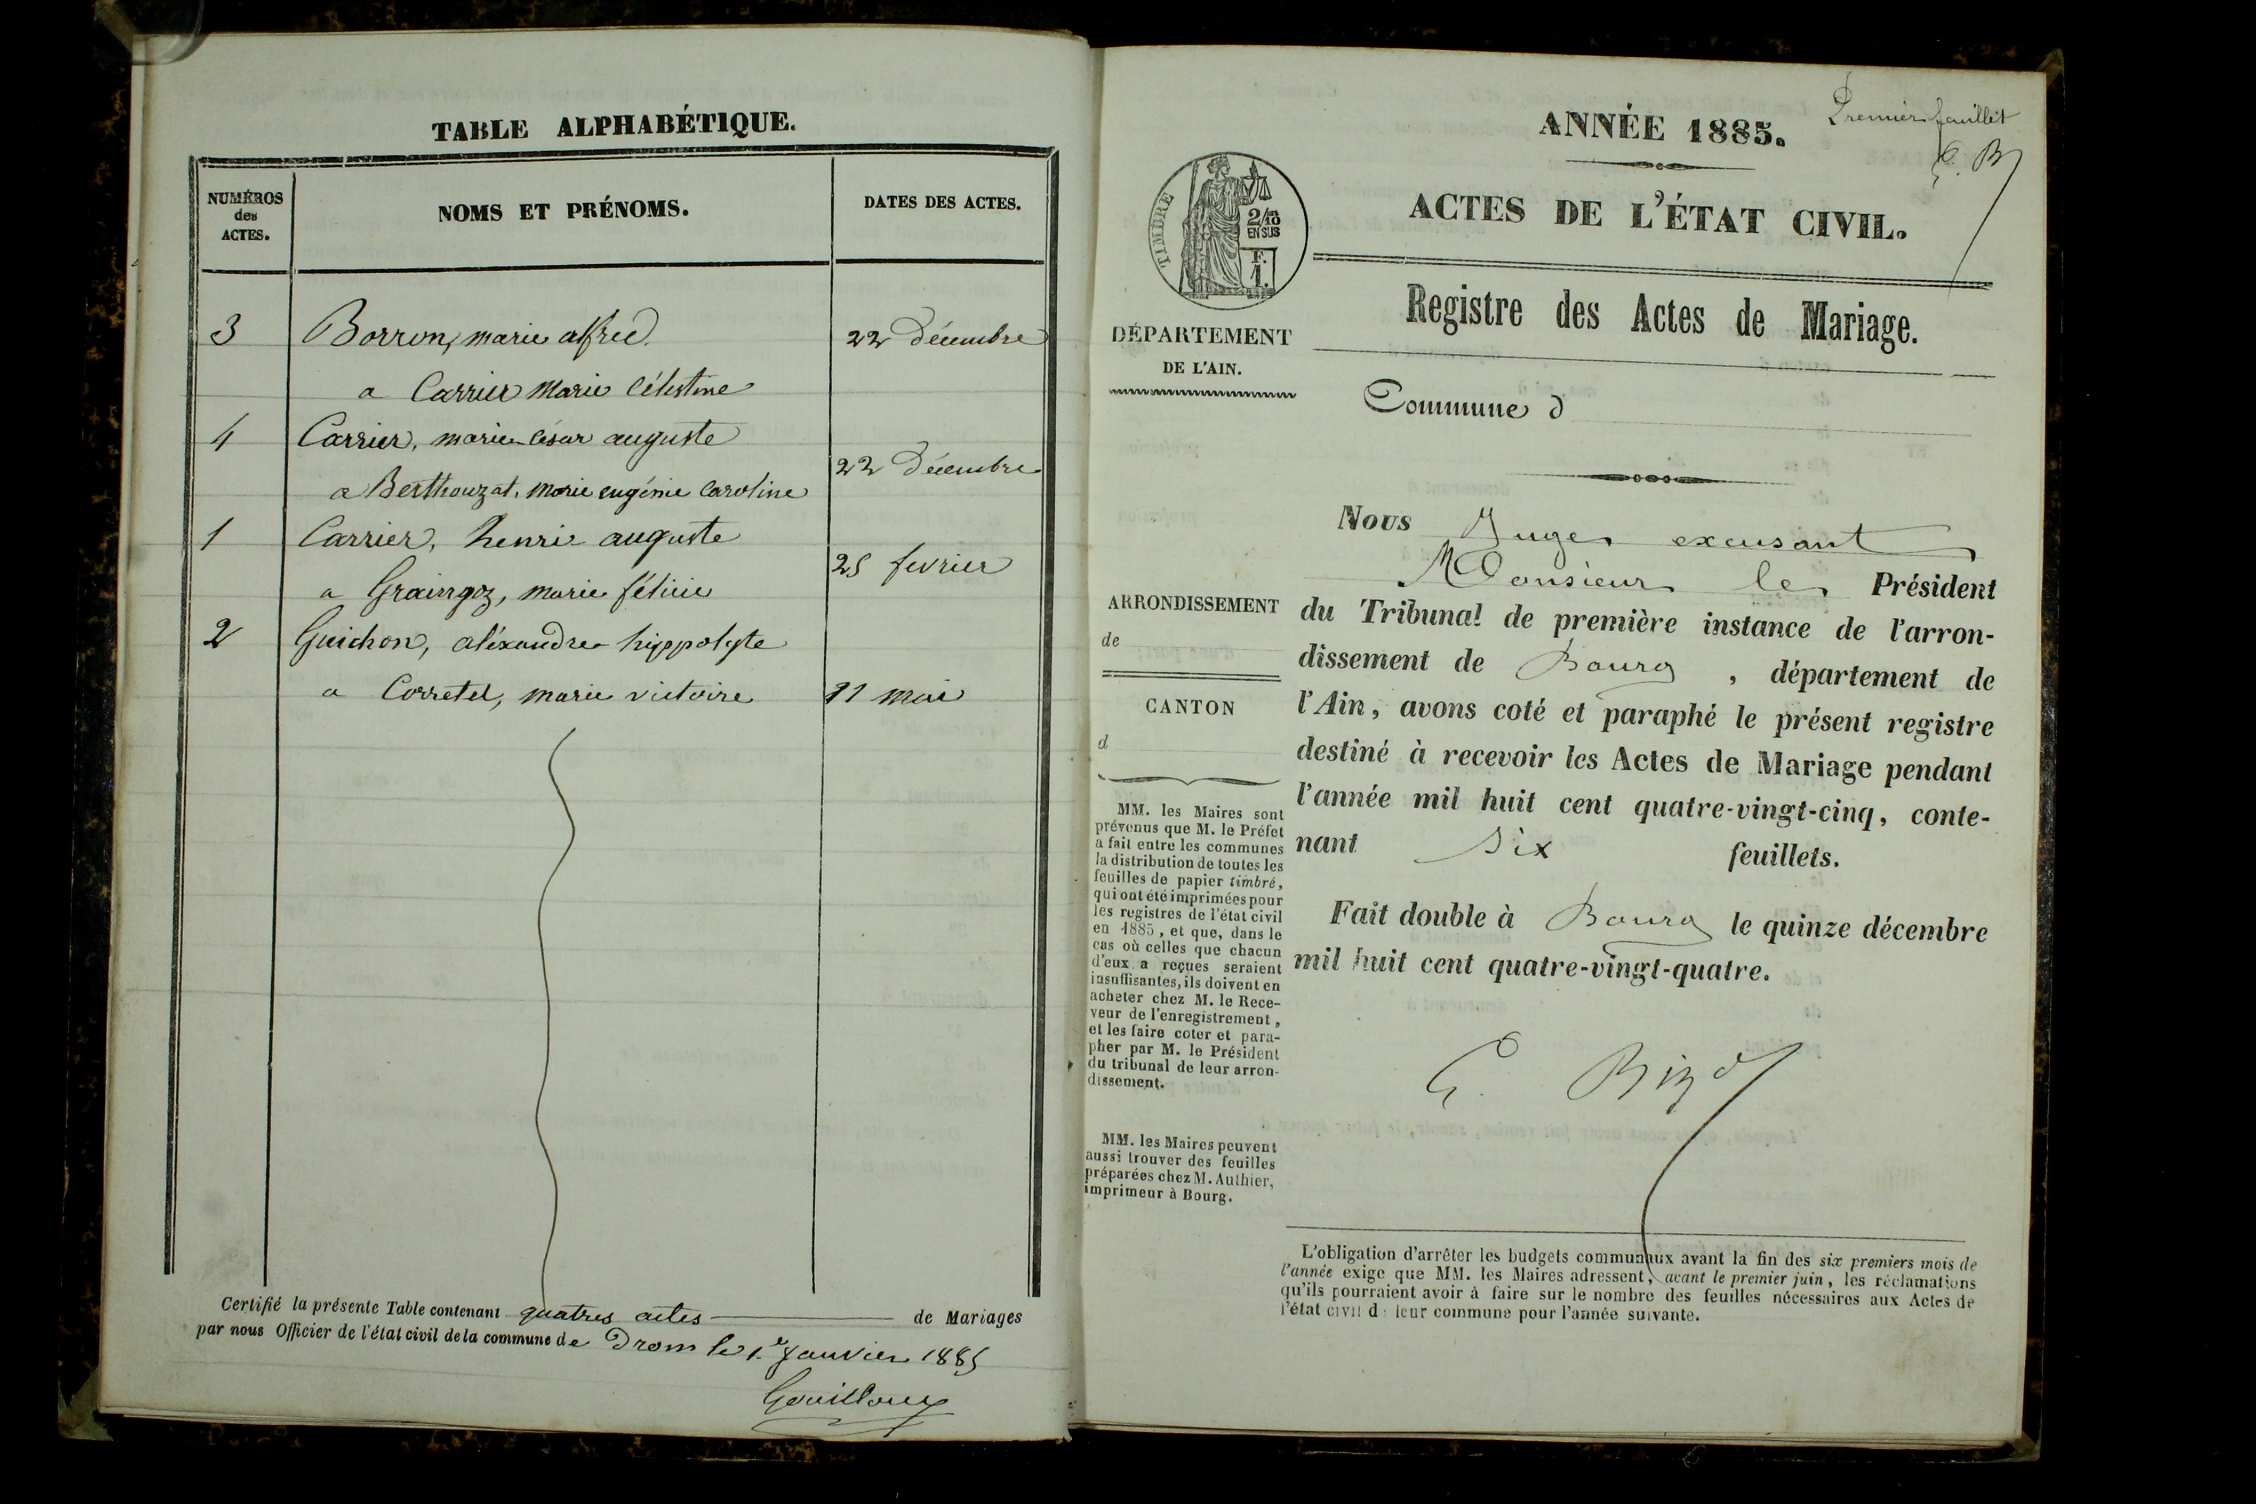 TABLE ALPHABÉTIQUE.
NUMÉROS
des
ACTES.
NOMS ET PRÉNOMS.
DATES DES ACTES.
3 Borron, marie alfred 22 Décembre
a Carrier Marie Célestine
4 Carrier, marie césar auguste
22 Décembre
a Berthouzat, Marie eugénie Caroline
1 Carrier, henri auguste
25 fevrier
a Graingoz, marie félicie
2 Guichon, aléxandre hippolyte
a Corretel, marie victoire 11 mai
Certifié la présente Table contenant quatres actes de Mariages
par nous Officier de l'état civil de la commune de Drom le 1er Janvier 1885
Gouilloux
Premier feuillet
E. B
ANNÉE 1885.
ACTES DE L'ÉTAT CIVIL.
TIMBRE
2/10
EN SUS
F.
1.
Registre des Actes de Mariage.
DÉPARTEMENT
DE L'AIN.
Commune d
Nous Juge excusant
Monsieur le Président
du Tribunal de première instance de l'arron-
dissement de Bourg, département de
l'Ain, avons coté et paraphé le présent registre
destiné à recevoir les Actes de Mariage pendant
l'année mil huit cent quatre-vingt-cinq, conte-
nant six feuillets.
Fait double à Bourg le quinze décembre
mil huit cent quatre-vingt-quatre.
E.
ARRONDISSEMENT
de
CANTON
d
MM. les Maires sont
prévenus que M. le Préfet
a fait entre les communes
la distribution de toutes les
feuilles de papier timbré,
qui ont été imprimées pour
les registres de l'état civil
en 1885, et que, dans le
cas où celles que chacun
d'eux a reçues seraient
insuffisantes, ils doivent en
acheter chez M. le Rece-
veur de l'enregistrement,
et les faire coter et para-
pher par M. le Président
du tribunal de leur arron-
dissement.
MM. les Maires peuvent
aussi trouver des feuilles
préparées chez M. Authier,
imprimeur à Bourg.
L'obligation d'arrêter les budgets communaux avant la fin des six premiers mois de
l'année exige que MM. les Maires adressent, avant le premier juin, les réclamations
qu'ils pourraient avoir à faire sur le nombre des feuilles nécessaires aux Actes de
l'état civil d leur commune pour l'année suivante.